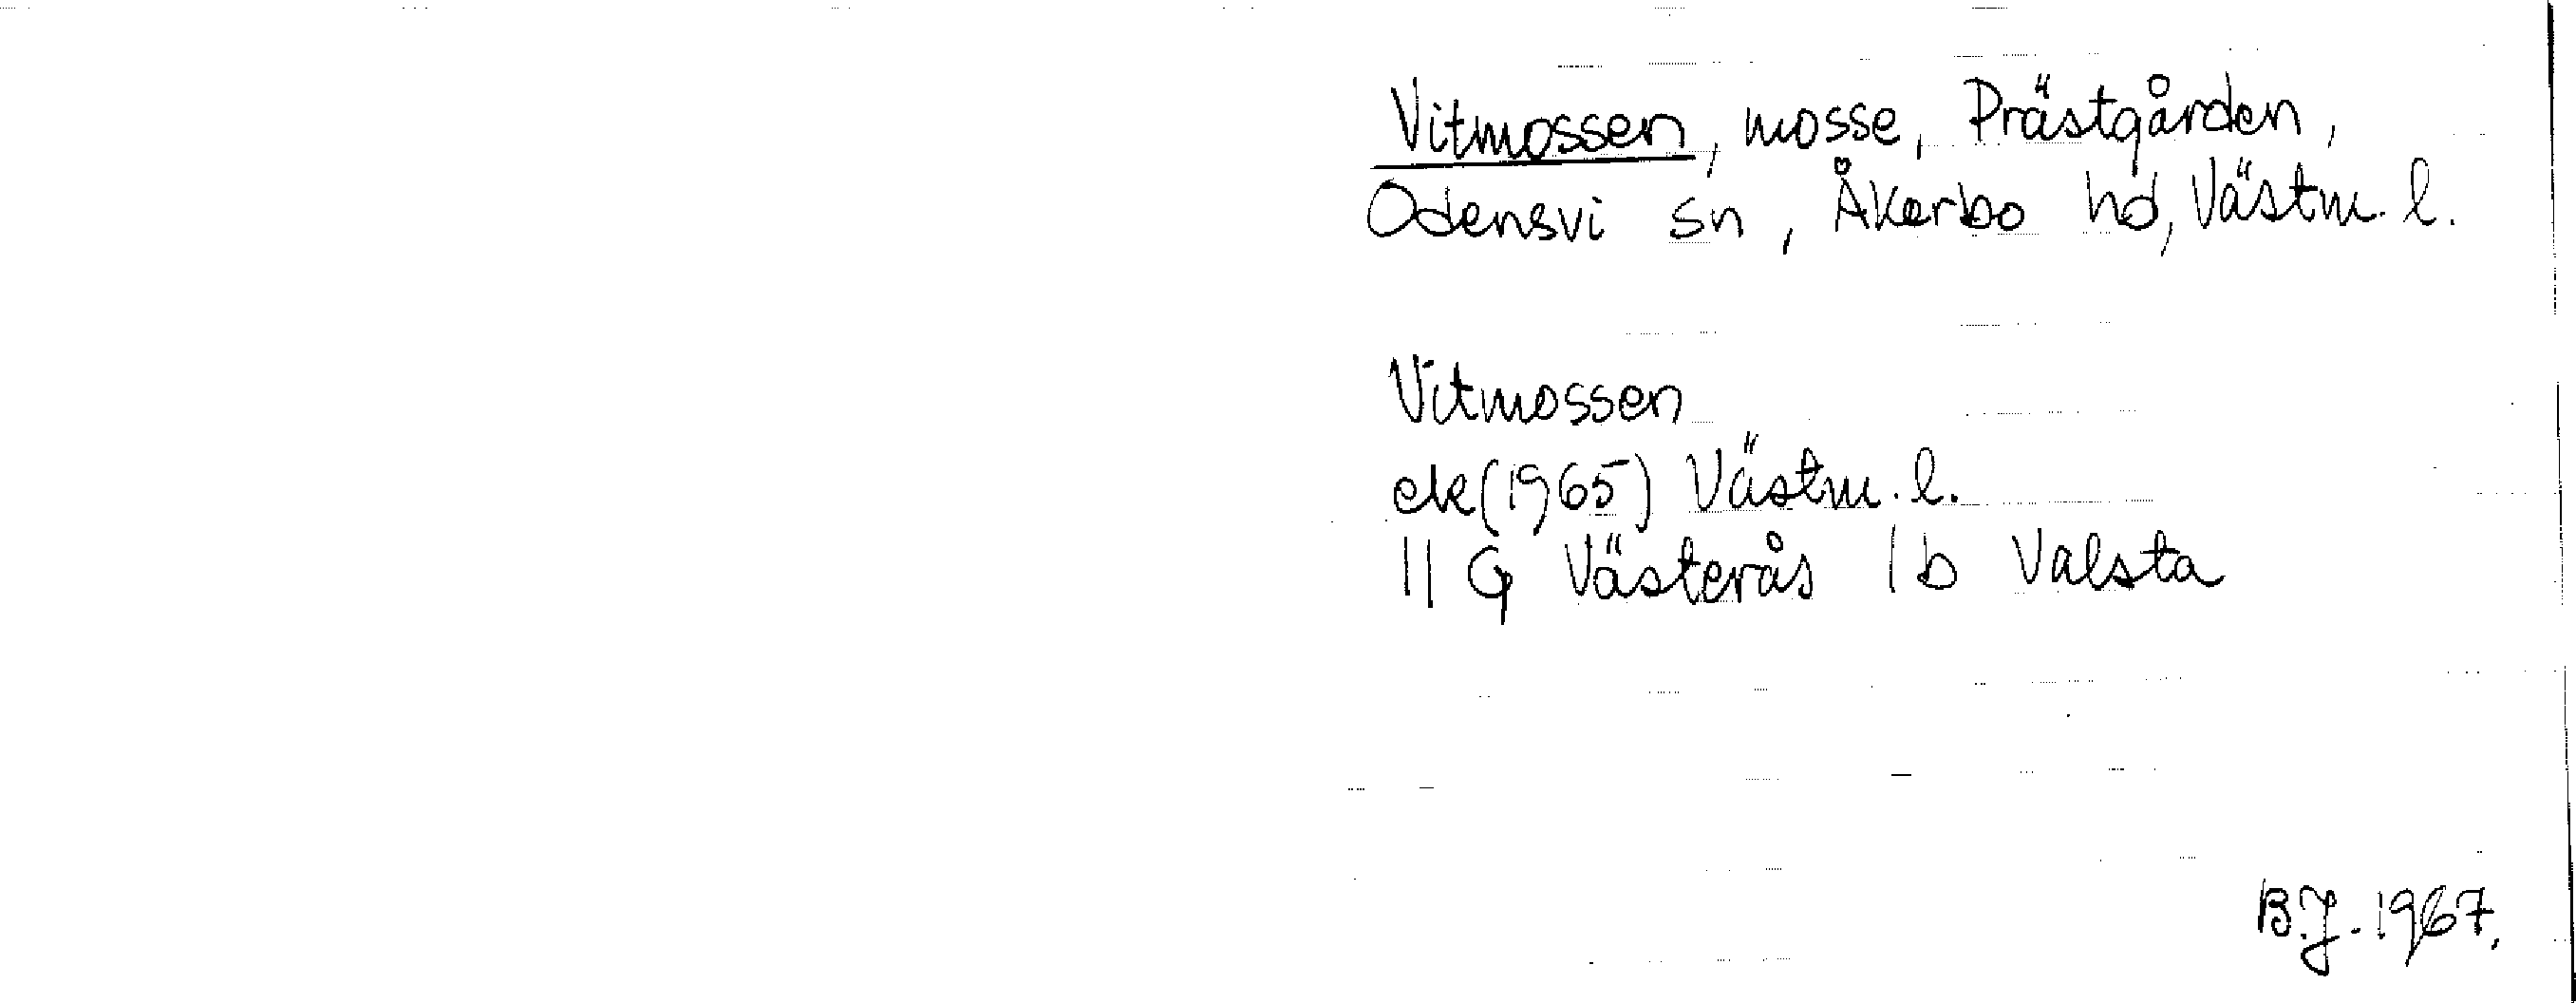 Vitmossen, mosse, Prästgården,
Odensvi sn, Åkerbo hd, Västm. l.
Vitmossen
ek (1965) Västm. l.
11 G Västerås 1 b Valsta
B.J. 1967.